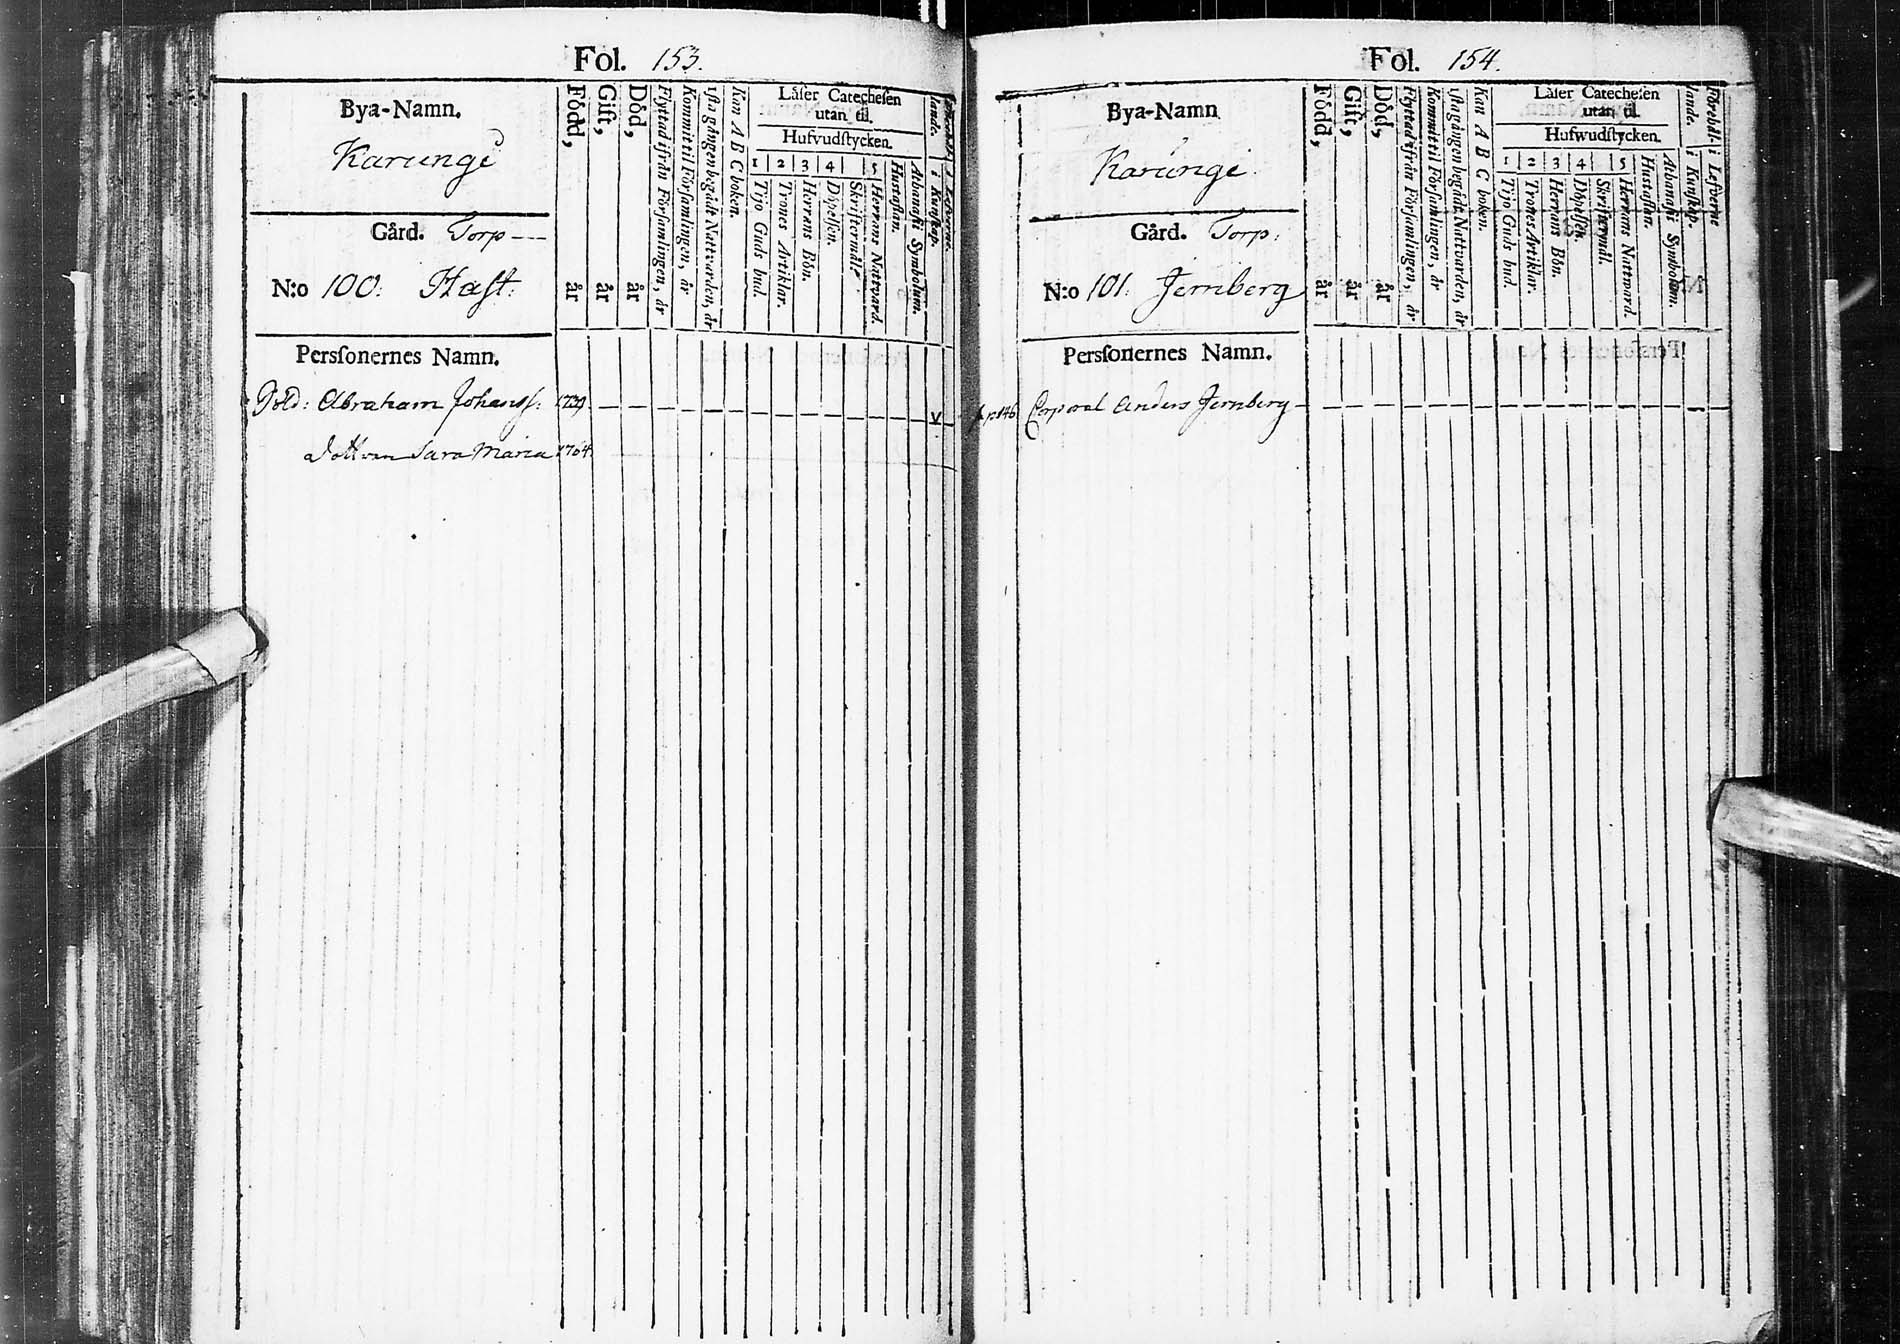 Fol. 153.
Bya-Namn.
Karungi
Gård. Torp
N:o 100: Hast:
Född, år
Gift, år
Död, år
Flyttad ifrån Församlingen, år
Kommit til Församlingen, år
1sta gången begådt Nattvarden, år
Kan A B C boken.
Låser Catechesen
utan til.
Hufvudstycken.
1 2 3 4 5
Tijo Guds bud.
Trones Artiklar.
Herrans Bön.
Döpelsen.
Skriftermål.
Herrans Nattvard.
Hustaflan.
Athanasii Symbolum.
i Kunskap.
Personernes Namn.
Sold: Abraham Johanss:
v
dottren Sara Maria 1764.
Fol. 154.
Bya-Namn
Karungi
Gård. Torp.
N:o 101. Jernberg
Född, år
Gift, år
Död, år
Flyttad ifrån Församlingen, år
Kommit til Församlingen, år
1sta gången begådt Nattvarden, år
Kan A B C boken.
Låser Catechesen
utan til.
Hufwudstycken.
1 2 3 4 5
Tijo Guds bud.
Trones Artiklar.
Herrans Bön.
Döpelsen.
Skriftermål.
Herrans Nattward.
Hustaflan.
Athanasii Symbolum.
Förehållande.
i Kunskap.
i Lefverne
Personernes Namn.
Corporal Anders Jernberg